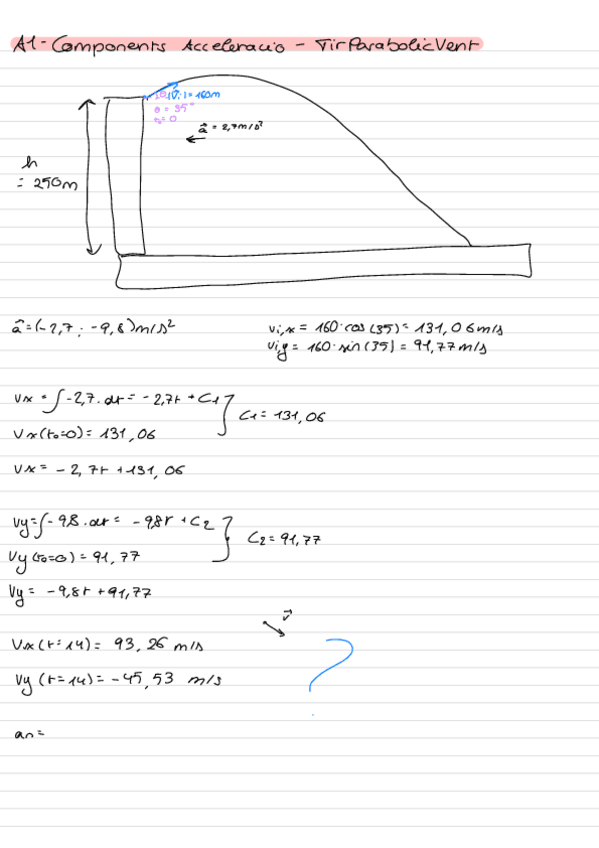 A1 - Components Acceleracio - TirParabolicVent
|v⃗i| = 160m
θ = 35°
t₀ = 0
a⃗ = 2,7m/s²
h
= 250m
a⃗ = (-2,7 ; -9,8) m/s²
vi,x = 160·cos(35) = 131,06m/s
vi,y = 160·sin(35) = 91,77m/s
vx = ∫-2,7·dt = -2,7t + C1
C1 = 131,06
vx(t₀=0) = 131,06
vx = -2,7t + 131,06
vy = ∫-9,8·dt = -9,8t + C2
C2 = 91,77
vy(t₀=0) = 91,77
vy = -9,8t + 91,77
v⃗
vx(t=14) = 93,26 m/s
vy(t=14) = -45,53 m/s
?
an =